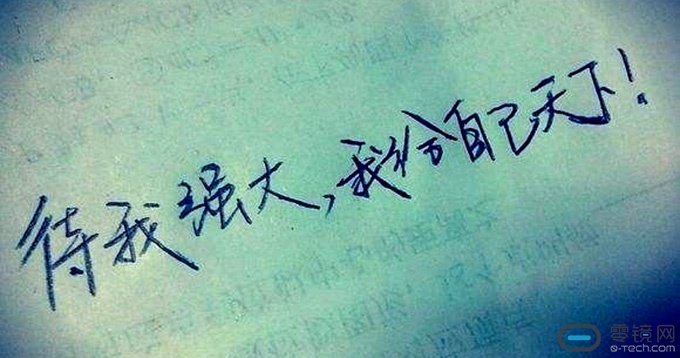 待我强大,我给自己天下!
零镜网
e-tech.com